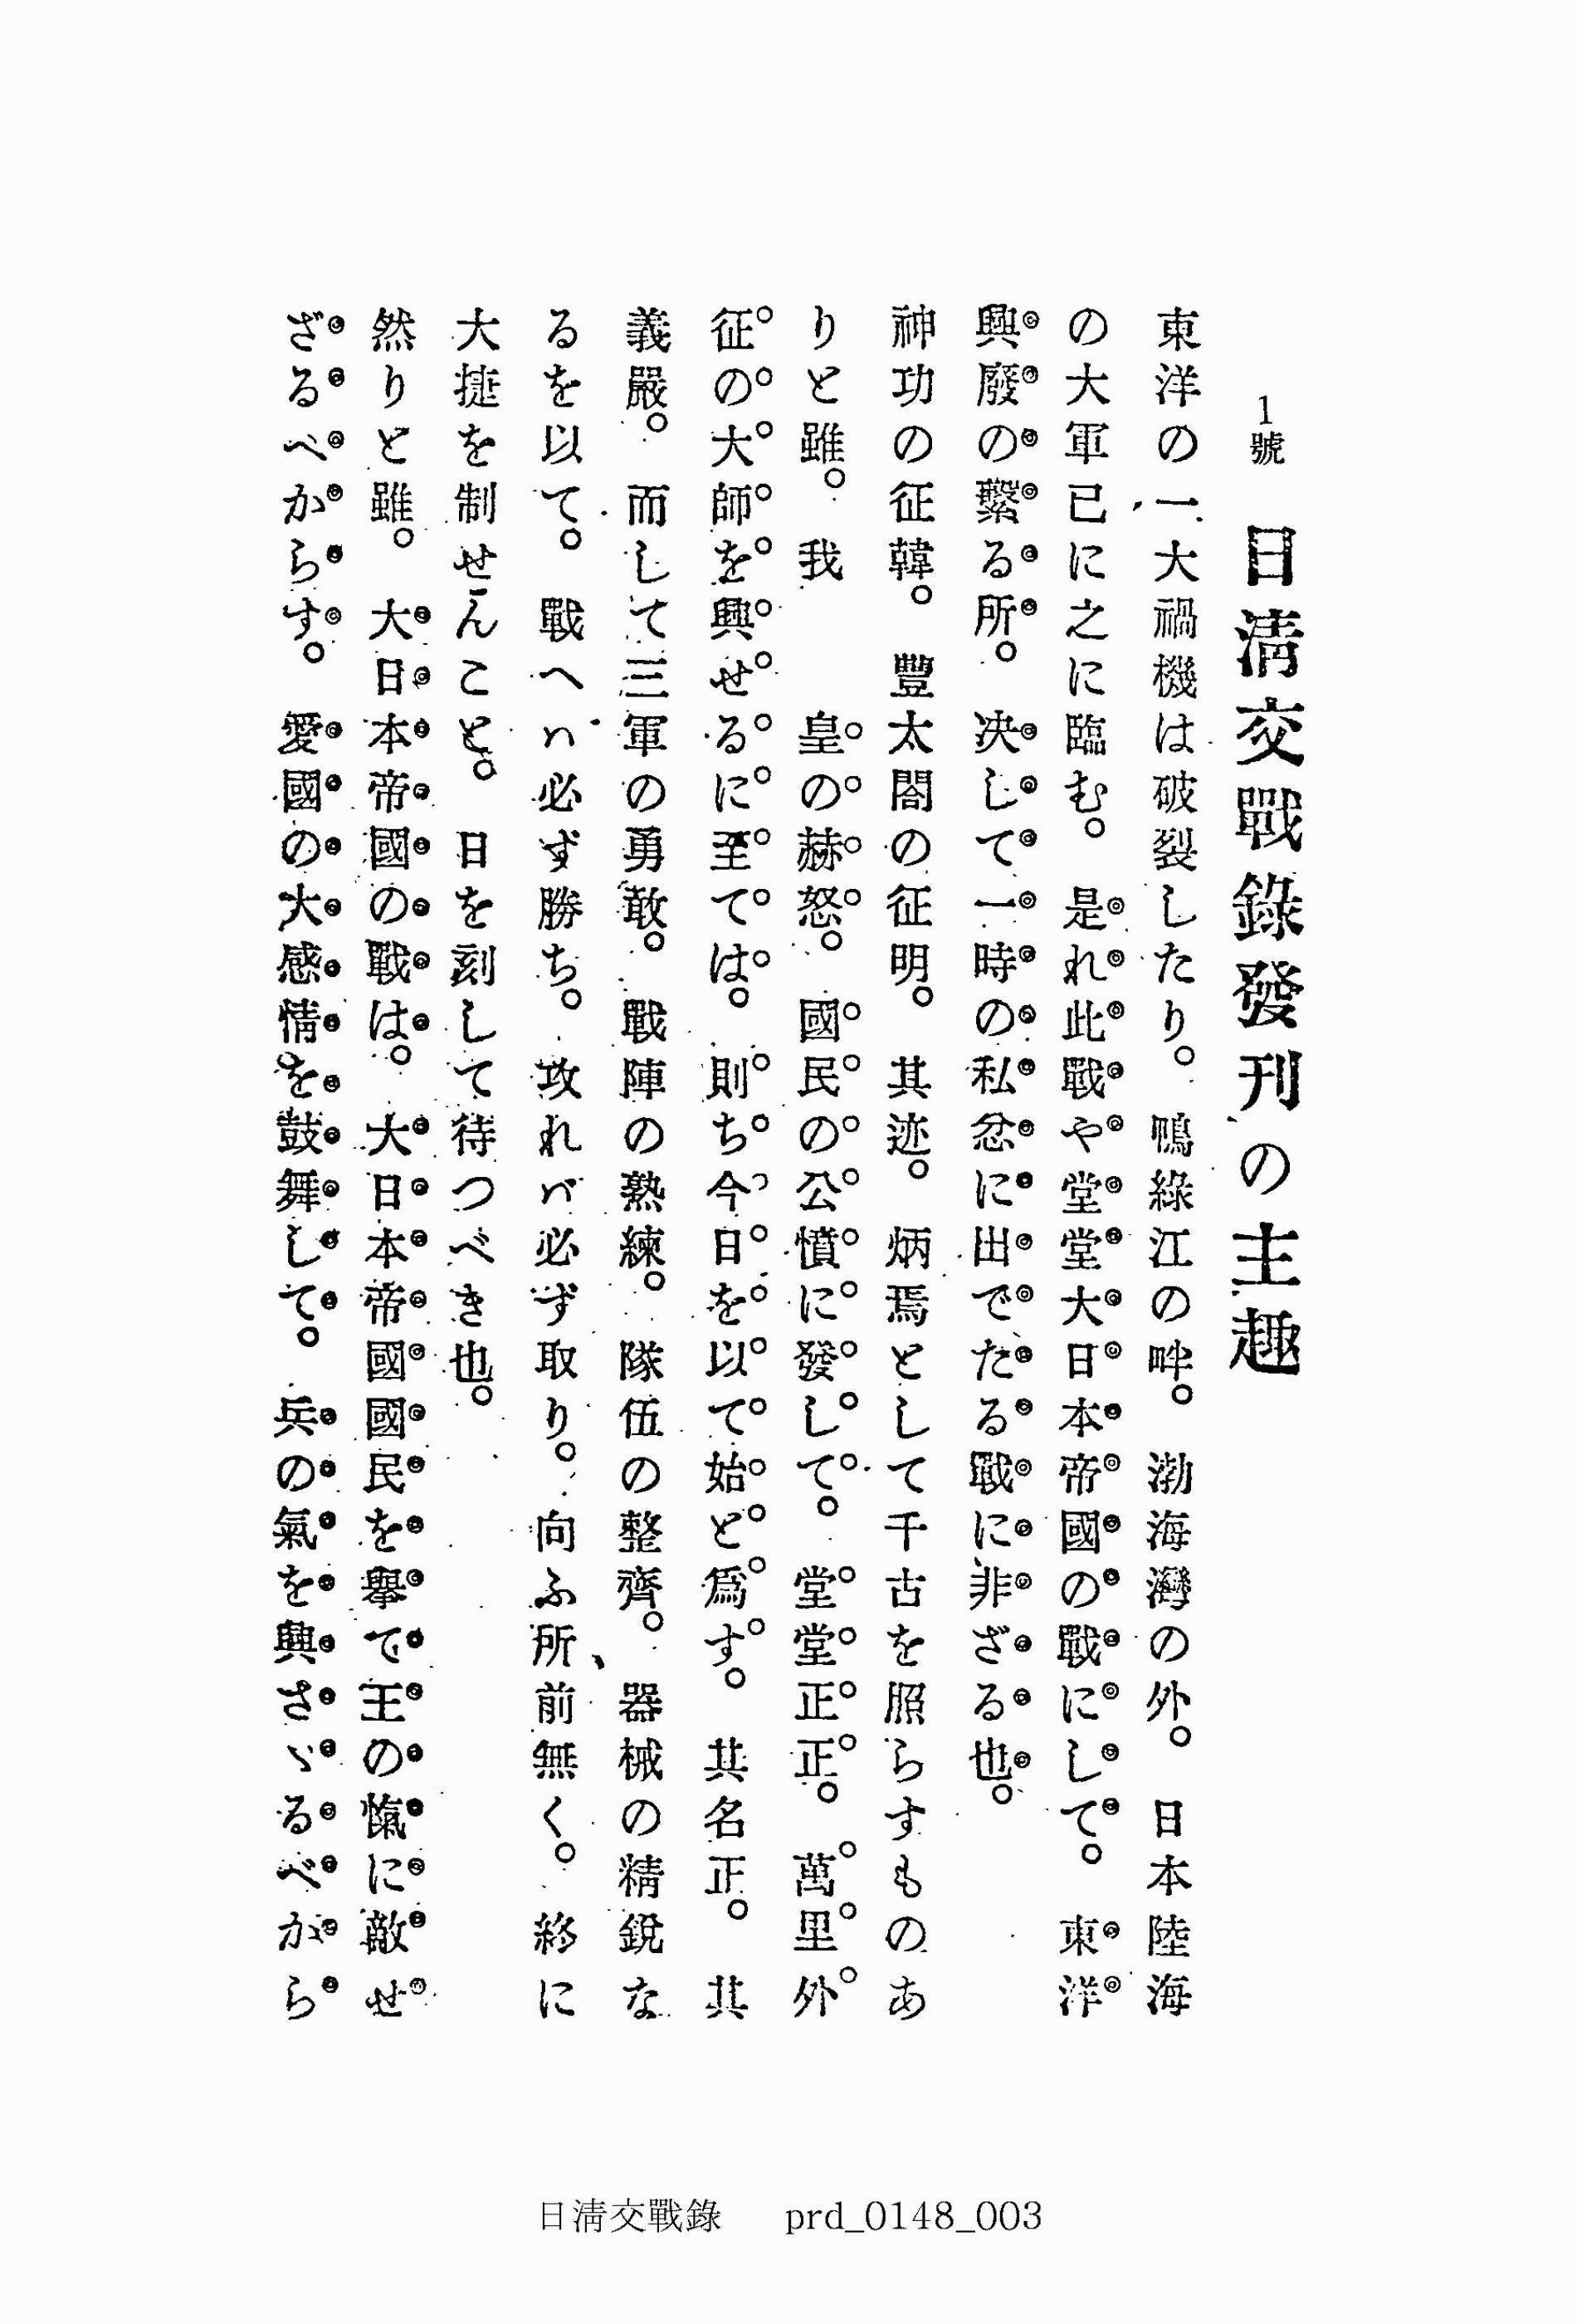 1號 日淸交戰錄發刊の主趣
東洋の一大禍機は破裂したり。鴨綠江の畔。渤海灣の外。日本陸海
の大軍已に之に臨む。是れ此戰や堂堂大日本帝國の戰にして。東洋
興廢の繫る所。决して一時の私忿に出でたる戰に非ざる也。
神功の征韓。豐太閤の征明。其迹。炳焉として千古を照らすものあ
りと雖。我 皇の赫怒。國民の公憤に發して。堂堂正正。萬里外
征の大師を興せるに至ては。則ち今日を以て始と爲す。其名正。其
義嚴。而して三軍の勇敢。戰陣の熟練。隊伍の整齊。器械の精銳な
るを以て。戰へハ必ず勝ち。攻れバ必ず取り。向ふ所前無く。終に
大捷を制せんこと。日を刻して待つべき也。
然りと雖。大日本帝國の戰は。大日本帝國國民を擧で王の愾に敵せ
ざるべからす。愛國の大感情を鼓舞して。兵の氣を興さゞるべから
日淸交戰錄 prd_0148_003